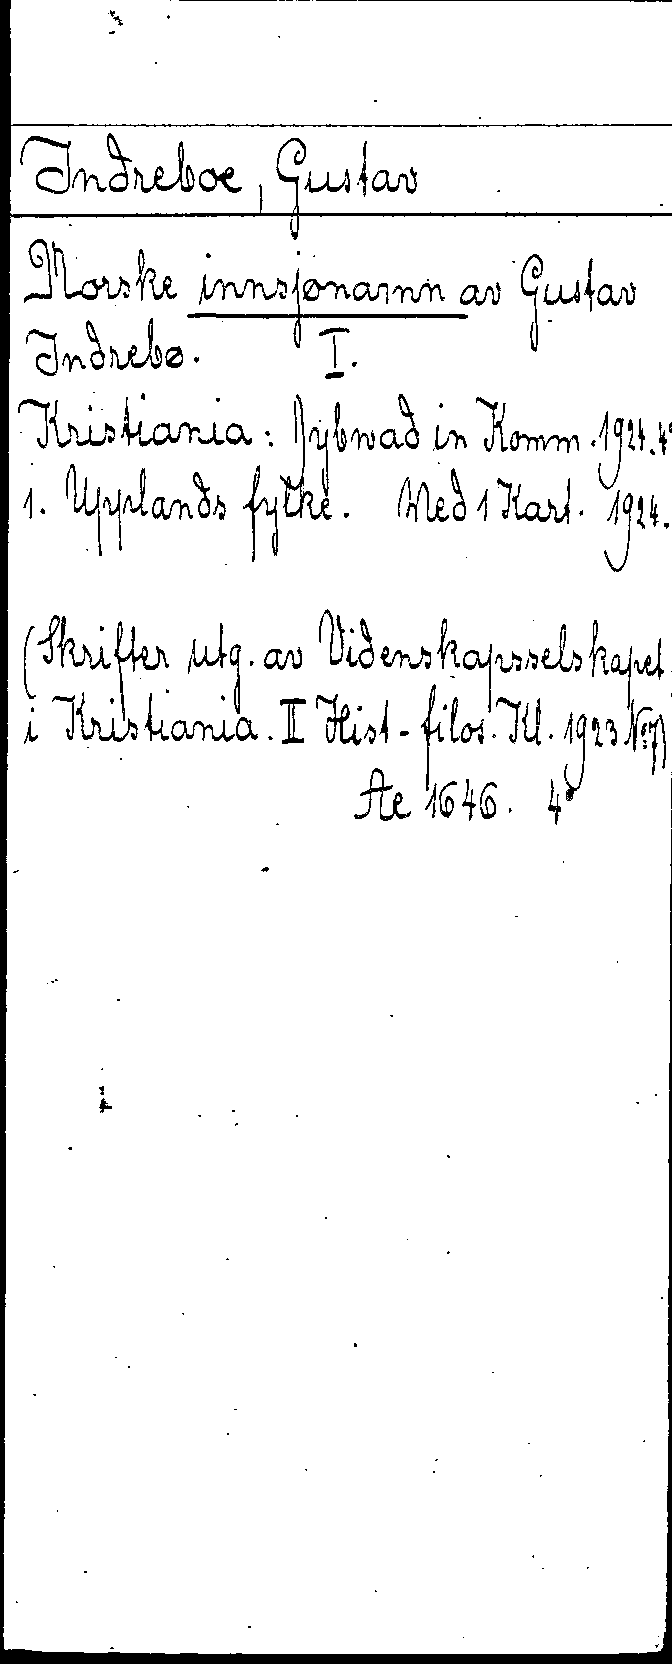 Indreboe, Gustav
Norske innsjønamn av Gustav
Indrebø. I.
Kristiania: Jybwad in Komm. 1924. 4°
1. Upplands fylke. Med 1 Kart. 1924.
(Skrifter utg. av Videnskapsselskapet
i Kristiania. II Hist-filos. Kl. 1923 No7)
Ae 1646. 4°